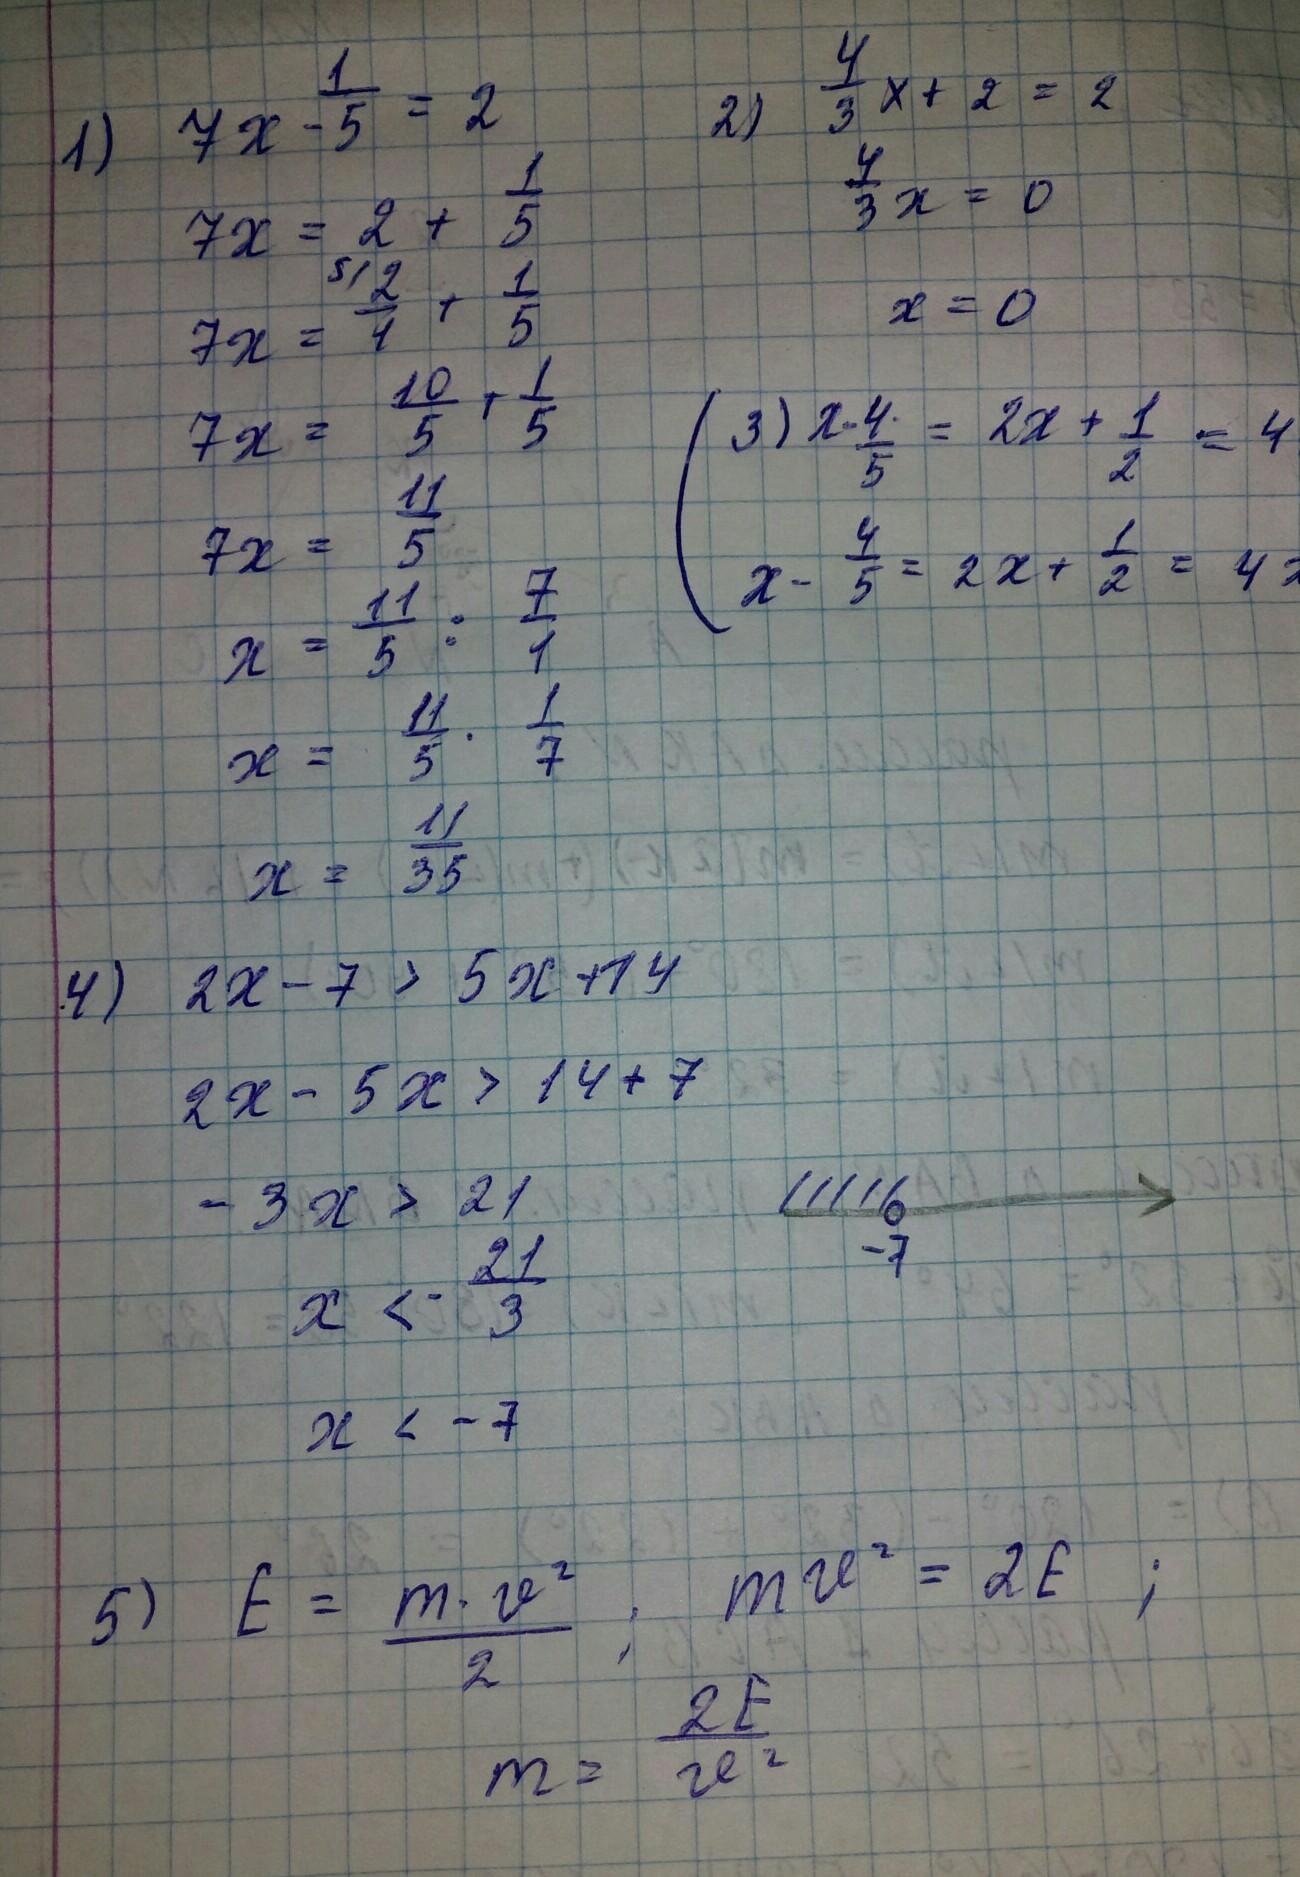 1) 7x - 1/5 = 2
7x = 2 + 1/5
7x = 5/ 2/1 + 1/5
7x = 10/5 + 1/5
7x = 11/5
x = 11/5 : 7/1
x = 11/5 · 1/7
x = 11/35
2) 4/3 x + 2 = 2
4/3 x = 0
x = 0
3) x - 4/5 = 2x + 1/2 = 4
x - 4/5 = 2x + 1/2 = 4x
4) 2x - 7 > 5x + 14
2x - 5x > 14 + 7
-3x > 21
x < - 21/3
-7
x < -7
5) E = m · v² / 2 ; mv² = 2E ;
m = 2E / v²